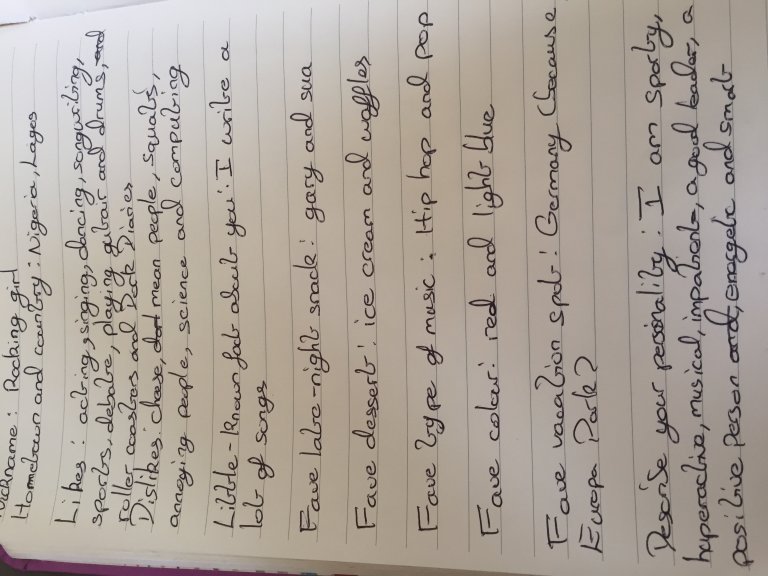 Nickname: Rocking girl
Hometown and country: Nigeria, Lagos
Likes: acting, singing, dancing, songwriting,
sports, debate, playing guitar and drums, and
roller coasters and Dork Diaries
Dislikes: chase, mean people, squats,
annoying people, science and computing
Little-known fat about you: I write a
lot of songs
Fave late-night snack: gary and sua
Fave dessert: ice cream and waffles
Fave type of music: Hip hop and pop
Fave colour: red and light blue
Fave vacation spot: Germany (because
Europa Park)
Describe your personality: I am sporty,
hyperactive, musical, impatient, a good leader, a
positive person and, energetic and smart